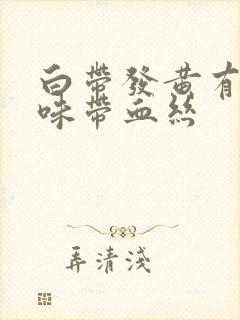 白帶發黃有
味帶血絲
弄清淺